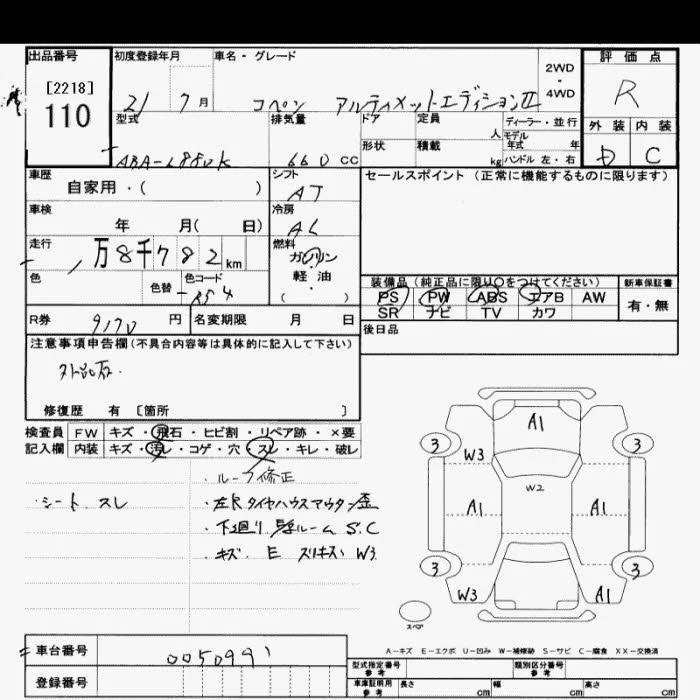 出品番号
[2218]
110
初度登録年月
21 7 月
車名・グレード
コペン アルティメットエディションⅡ
2WD
・
4WD
評価点
R
外装 内装
D C
型式
ABA-L880K
排気量
660 CC
ドア
形状
定員
人
積載
kg
ディーラー・並行
モデル
年式 年
ハンドル 左・右
車歴
自家用・( )
シフト
AT
セールスポイント (正常に機能するものに限ります)
車検
年 月( 日)
冷房
AC
走行
万8千782km
燃料
ガソリン
・
軽油
( )
色
色替
色コード
R54
装備品 (純正品に限り○をつけてください)
PS PW ABS エアB AW
SR ナビ TV カワ
新車保証書
有・無
R券
9170 円
名変期限 月 日
後日品
注意事項申告欄(不具合内容等は具体的に記入して下さい)
修復歴 有 〔箇所 〕
検査員
記入欄
FW キズ・飛石・ヒビ割・リペア跡・×要
内装 キズ・汚レ・コゲ・穴・スレ・キレ・破レ
・シート スレ
・ルーフ修正
・左R タイヤハウスアウター歪
・下廻り ルーム S.C
・キズ E スリキズ W3
A1
3 3
W3
W2
A1 A1
3 3
W3 A1
スペア
A-キズ E-エクボ U-凹み W-補修跡 S-サビ C-腐食 XX-交換済
車台番号
0050991
登録番号
型式指定番号
参考
類別区分番号
参考
車庫証明用
参考
長さ cm
幅 cm
高さ cm